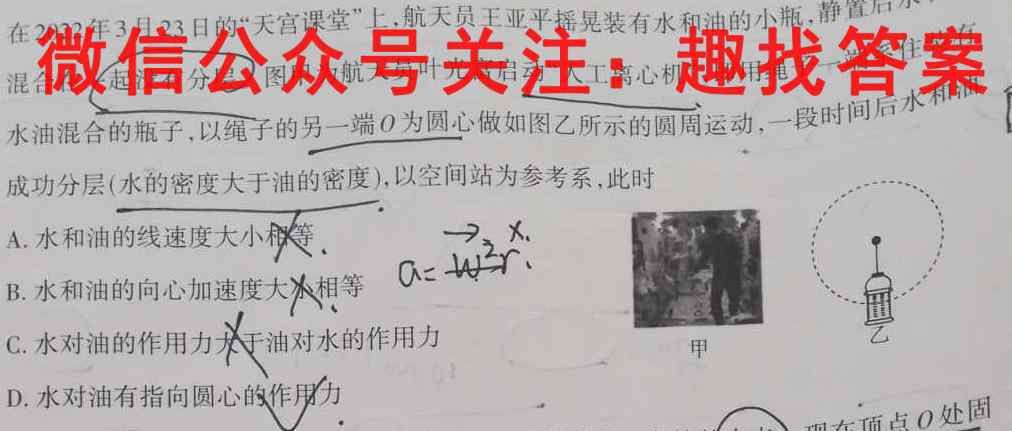 在2022年3月23日的“天宫课堂”上,航天员王亚平摇晃装有水和油的小瓶,静置后水
微信公众号关注：趣找答案
混合在一起没有分层 图甲为航天员叶光富启动 人工离心机 用绳子一端系住
水油混合的瓶子,以绳子的另一端O为圆心做如图乙所示的圆周运动,一段时间后水和油
成功分层(水的密度大于油的密度),以空间站为参考系,此时
A. 水和油的线速度大小相等
B. 水和油的向心加速度大小相等
a=w²r.
C. 水对油的作用力大于油对水的作用力
D. 水对油有指向圆心的作用力
甲
乙
现在顶点O处固